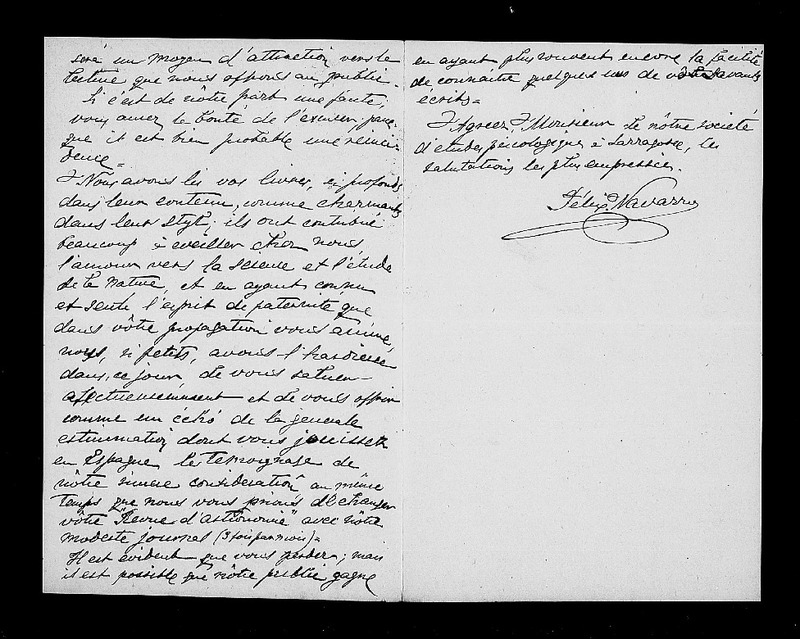 será un moyen d'attraction vers la
lecture que nous offrons au public.
Si c'est de nôtre part une faute,
vous aurez la bonté de l'excuser, parce
que it est bien probable une réinci
dence =
Nous avons lu vos livres, si profonds
dans leur contenu, comme chermants
dans leur style; ils ont contribué
beaucoup à eveiller chez nous
l'amour vers la science et l'étude
de la nature, et en ayant connu
et sentu l'esprit de paternité que
dans vôtre propagation vous anime
nous, si petits, avons l'hardiesse
dans ce jour, de vous saluer
afectueusement et de vous offrir
comme un écho de la generale
estimmation dont vous jouissez
en Espagne le temoignage de
nôtre sincere consideration au même
temps que nous vous prions d'échanger
vôtre "Revue d'astronomie" avec nôtre
modeste journal (3 fois par mois) =
Il est evident que vous perdez; mais
il est possible que nôtre public gagne
en ayant plus souvent encore la facilité
de connaitre quelques uns de vos savants
écrits =
Agreez, Monsieur de nôtre societé
d'etudes psicologiques à Sarragosse, les
salutations les plus empressées.
Félix Navarro